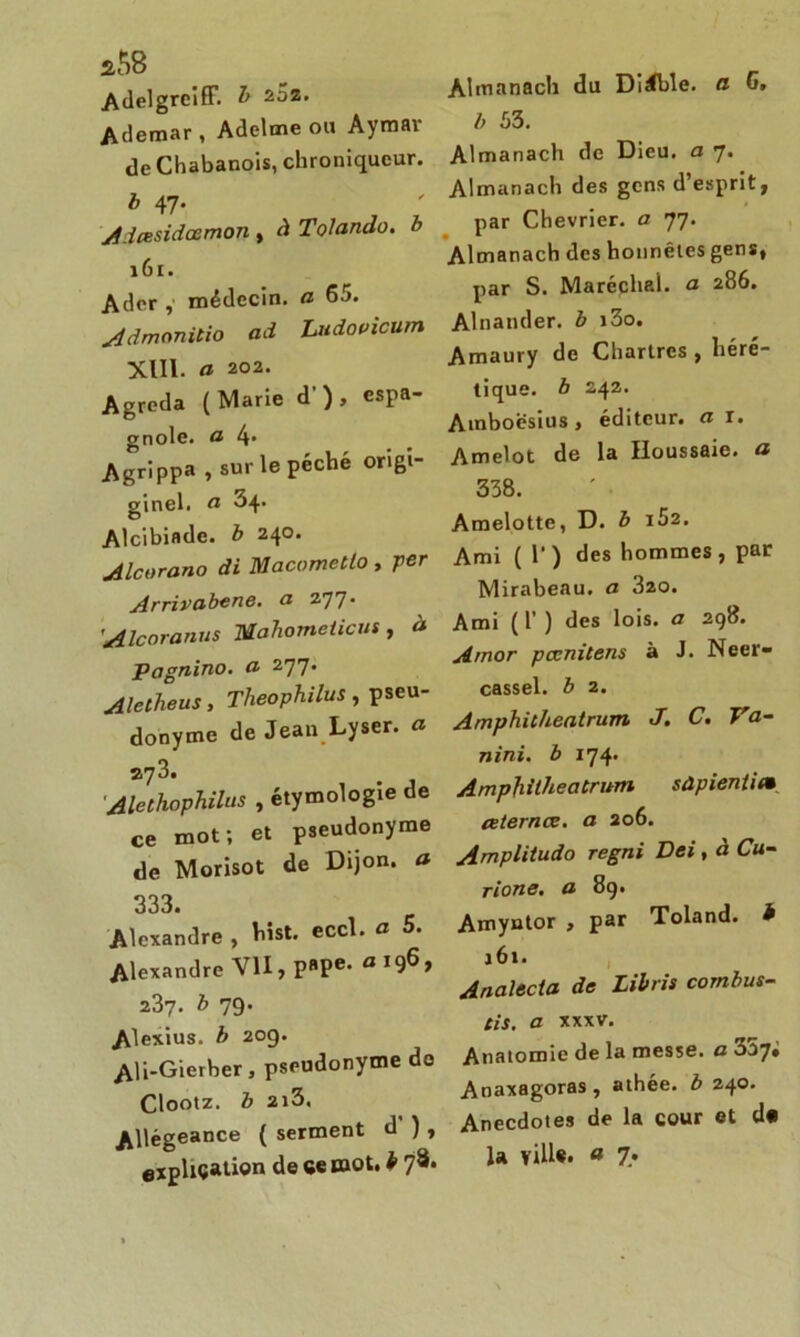 258
Adelgreiff. b 252.
Ademar, Adelme ou Aymar
de Chabanois, chroniqueur.
b 47.
Adæsidæmon, à Tolando. b
161.
Ader, médecin. a 65.
Admonitio ad Ludovicum
XIII. a 202.
Agreda (Marie d'), espa-
gnole. a 4.
Agrippa, sur le péché origi-
ginel. a 34.
Alcibiade. b 240.
Alcorano di Macometto, per
Arrivabene. a 277.
Alcoranus Mahometicus, à
Pagnino. a 277.
Aletheus, Theophilus, pseu-
donyme de Jean Lyser. a
273.
Alethophilus, étymologie de
ce mot; et pseudonyme
de Morisot de Dijon. a
333.
Alexandre, hist. eccl. a 5.
Alexandre VII, pape. a 196,
237. b 79.
Alexius. b 209.
Ali-Gierber, pseudonyme de
Clootz. b 213.
Allégeance (serment d'),
explication de ce mot. b 78.
Almanach du Diable. a 6,
b 53.
Almanach de Dieu. a 7.
Almanach des gens d'esprit,
par Chevrier. a 77.
Almanach des honnêtes gens,
par S. Maréchal. a 286.
Alnander. b 130.
Amaury de Chartres, héré-
tique. b 242.
Amboësius, éditeur. a 1.
Amelot de la Houssaie. a
338.
Amelotte, D. b 152.
Ami (l') des hommes, par
Mirabeau. a 320.
Ami (l') des lois. a 298.
Amor pœnitens à J. Neer-
cassel. b 2.
Amphitheatrum J. C. Va-
nini. b 174.
Amphitheatrum sapientiæ
æternæ. a 206.
Amplitudo regni Dei, à Cu-
rione. a 89.
Amyntor, par Toland. b
161.
Analecta de Libris combus-
tis. a xxxv.
Anatomie de la messe. a 337.
Anaxagoras, athée. b 240.
Anecdotes de la cour et de
la ville. a 7.